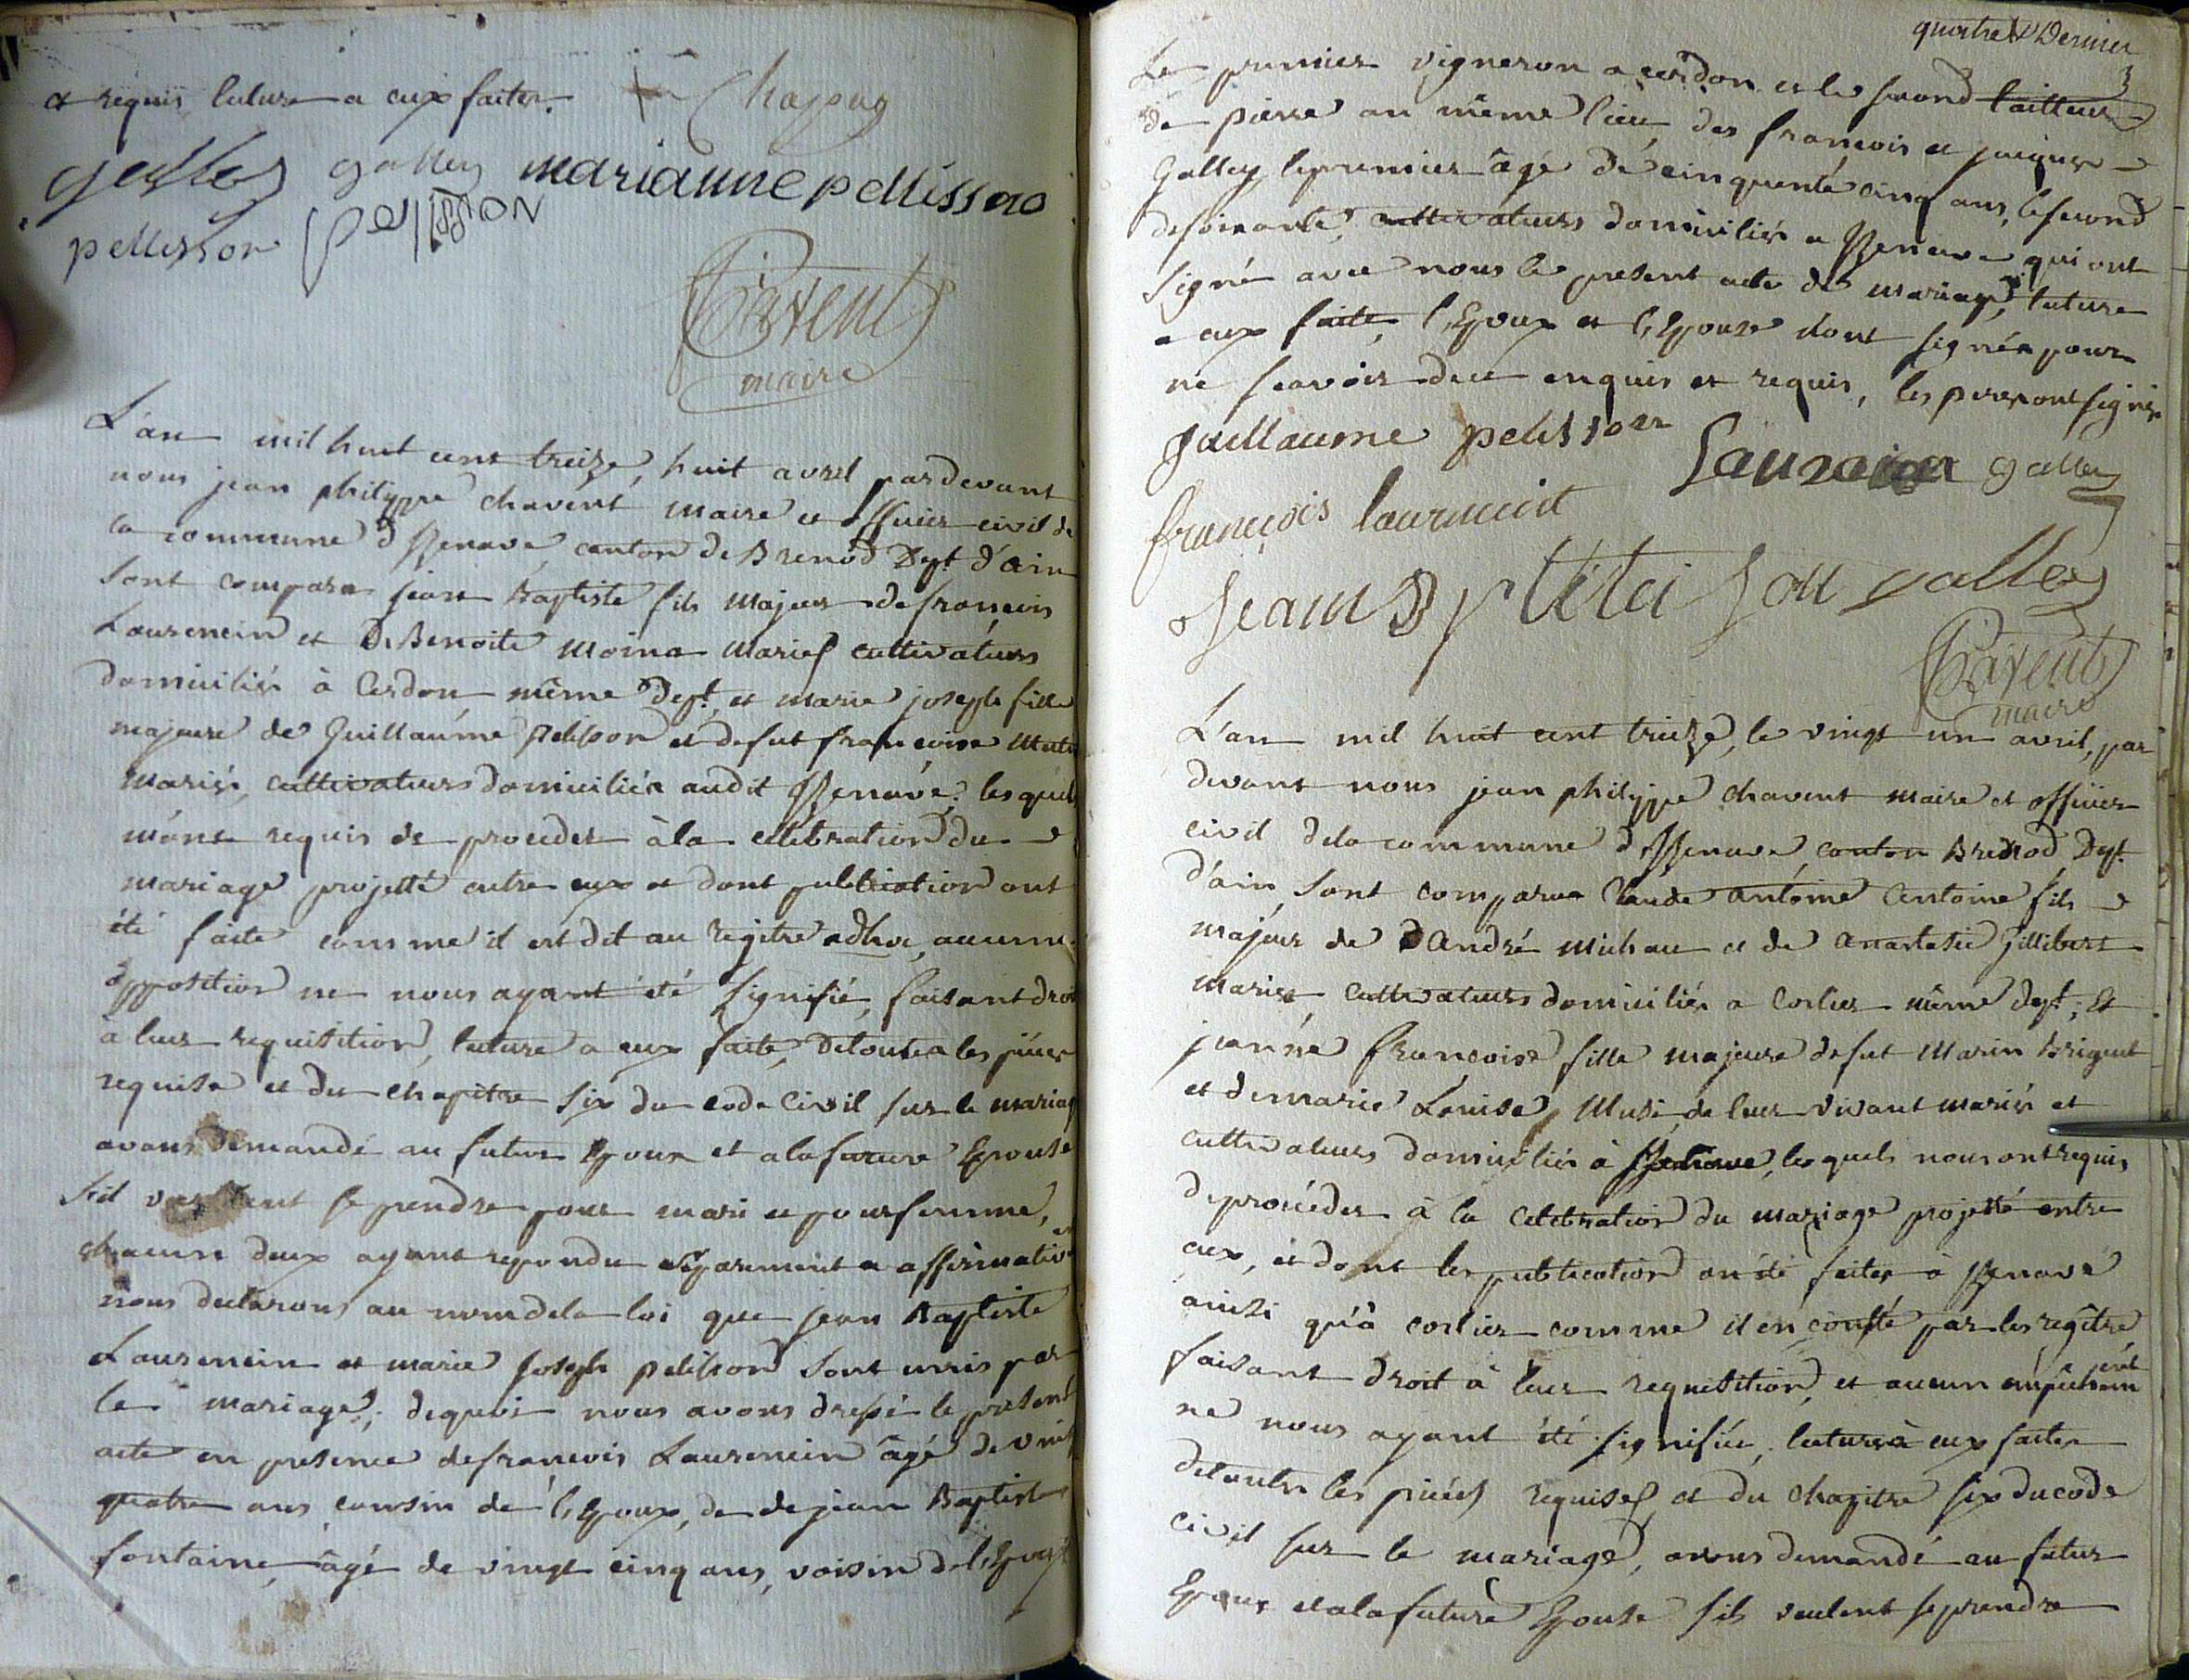 et requis lecture a eux faite. Chapuy
galley galley marianne pellisson
pellisson pelisson
Chavent
maire
L'an mil huit cent treize, huit avril pardevant
nous jean philippe chavent maire et officier civil de
la commune d'Izenave canton de Brenod Dept d'ain
sont comparu jean Baptiste fils majeur de francois
Laurencin et De Benoite moina mariés cultivateurs
domiciliés à Cerdon même Dept, et marie joseph fille
majeure de Guillaume Pelisson et defut francoise
mariés, cultivateurs domiciliés audit Izenave, lesquels
requis de proceder à la celebration du
mariage projetté entre eux et dont publication ont
été faite comme il est dit au regitre adhoc, aucune
opposition ne nous ayant été signifié, faisant droit
à leur requisition, lecture a eux faite, De toutes les pièces
requise et du chapitre six du code Civil sur le mariage
avons demandé au futur Epoux et a la future Epouse
sil veulent se prendre pour mari et pour femme,
chacun deux ayant repondu séparement et affirmative
nous declarons au nom de la loi que jean Baptiste
Laurencin et marie Joseph pelisson sont unis par
le mariage; dequoi nous avons dressé le present
acte en presence defrancois Laurencin âgé de vingt
quatre ans cousin de l'Epoux, de de jean Baptiste
fontaine, âgé de vingt cinq ans, voisin de l'Epoux
quatre & Dernier
3
Le premier vigneron a cerdon et le second tailleur
de pierre au même lieu, des francois et jacques
Galley le premier âgé de cinquente cinq ans, le second
desoixante, cultivateurs domiciliés a Izenave qui ont
signé avec nous le present acte de mariage, lecture
a eux faite, l'Epoux et l'Epouse n'ont signés pour
ne scavoir de ce enquis et requis, les peres ont signés
guillaume pelisson
Laurencin galley
francois laurencin
jean
galley
Chavent
maire
L'an mil huit cent treize, le vingt un avril, par
devant nous jean philippe chavent maire et officier
civil dela commune d'Izenave canton Brenod Dept
d'ain, sont comparus Claude antoine Centoine fils
majeur de D André Michau et de anastasie Gillibert
mariés, cultivateurs domiciliés a Corlier même dept; Et
jeanne francoise fille majeure defut Marin Brigent
et de marie Louise Musi, de leur vivant mariés et
cultivateurs domiciliés à Izenave, lesquels nous ont requis
de procéder à la celebration du mariage projetté entre
eux, et dont les publication on été faites à Izenave
ainsi qu'à corlier comme il en conste par les regître
faisant droit à leur requisition, et aucun empêchement
ne nous ayant été signifiée, lecture à eux faite
detoutes les pièces requises, et du chapitre six du code
civil sur le mariage, avons demandé au futur
Epoux et a la future Epouse sils veulent se prendre